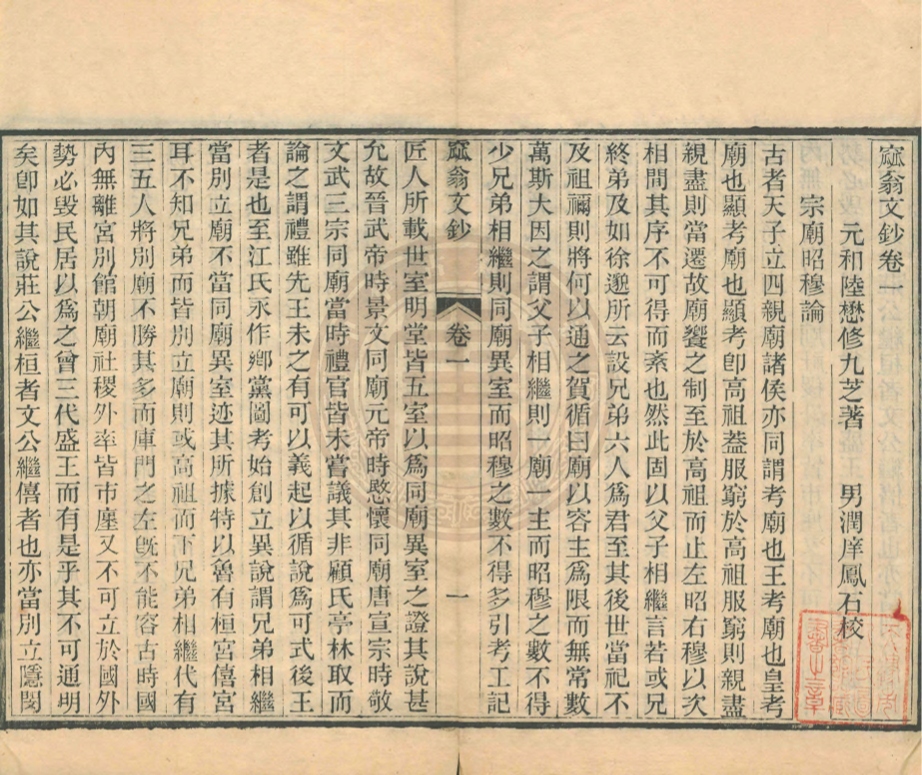 窳翁文鈔卷一
元和陸懋修九芝著 男潤庠鳳石校
宗廟昭穆論
古者天子立四親廟諸侯亦同謂考廟也王考廟也皇考
廟也顯考廟也顯考卽高祖葢服窮於高祖服窮則親盡
親盡則當遷故廟饗之制至於高祖而止左昭右穆以次
相間其序不可得而紊也然此固以父子相繼言若或兄
終弟及如徐邈所云設兄弟六人爲君至其後世當祀不
及祖禰則將何以通之賀循曰廟以容主爲限而無常數
萬斯大因之謂父子相繼則一廟一主而昭穆之數不得
少兄弟相繼則同廟異室而昭穆之數不得多引考工記
窳翁文鈔 卷一 一
匠人所載世室明堂皆五室以爲同廟異室之證其說甚
允故晉武帝時景文同廟元帝時愍懷同廟唐宣宗時敬
文武三宗同廟當時禮官皆未嘗議其非顧氏亭林取而
論之謂禮雖先王未之有可以義起以循說爲可式後王
者是也至江氏永作鄉黨圖考始創立異說謂兄弟相繼
當別立廟不當同廟異室迹其所據特以魯有桓宮僖宮
耳不知兄弟而皆別立廟則或高祖而下兄弟相繼代有
三五人將別廟不勝其多而庫門之左旣不能容古時國
內無離宮別館朝廟社稷外率皆市廛又不可立於國外
勢必毀民居以爲之曾三代盛王而有是乎其不可通明
矣卽如其說莊公繼桓者文公繼僖者也亦當別立隱閔